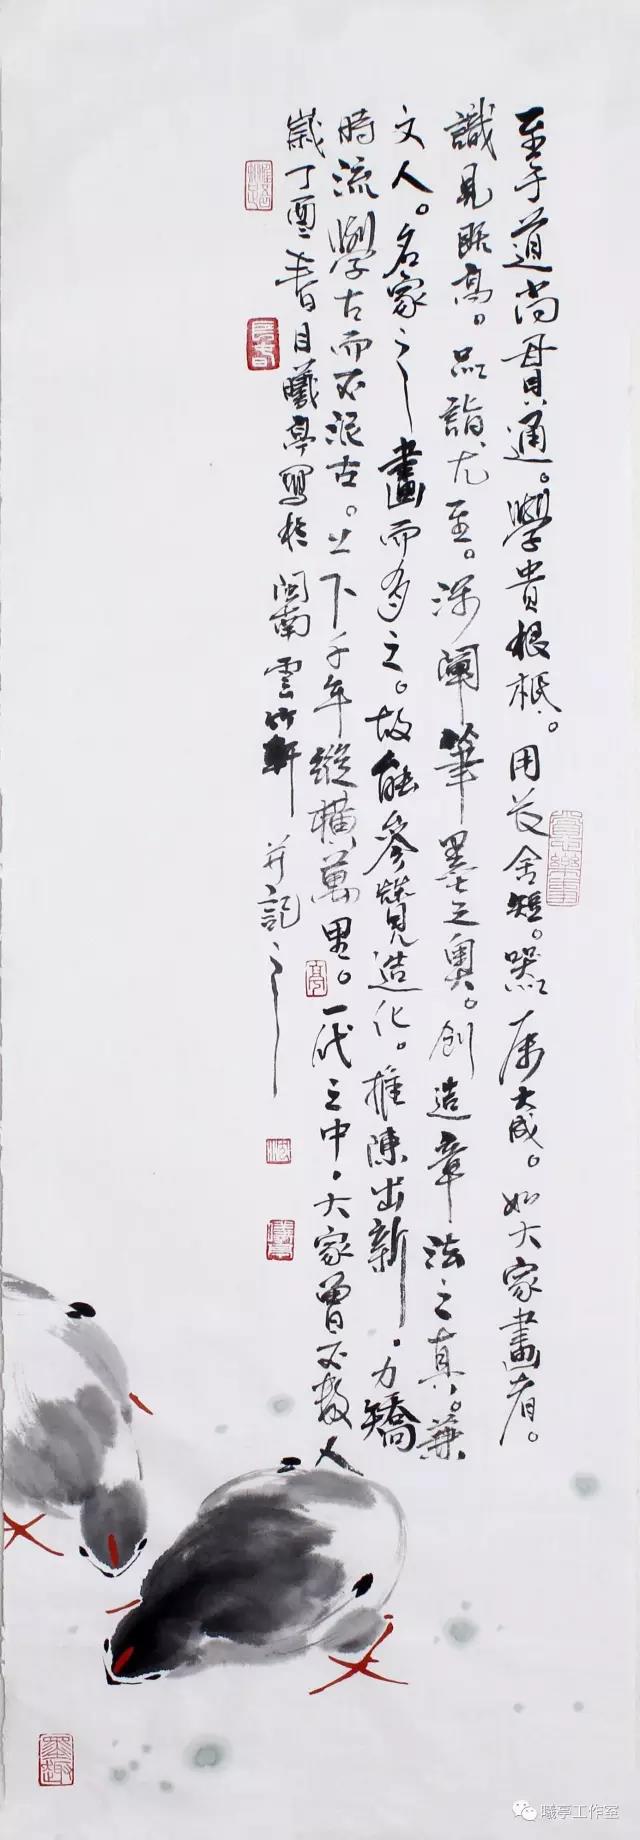 至于道尚貫通。學貴根柢。用長舍短。器屬大成。如大家畫者。
識見既高。品詣尤至。深闡筆墨之奧。創造章法之真。兼
文人。名家之畫而有之。故能參贊造化。推陳出新。力矯
時流。學古而不泥古。上下千年。縱橫萬里。一代之中。大家曾不數人
歲丁酉春日曦亭寫於閩南雲竹軒并記之
墨趣
曦亭工作室